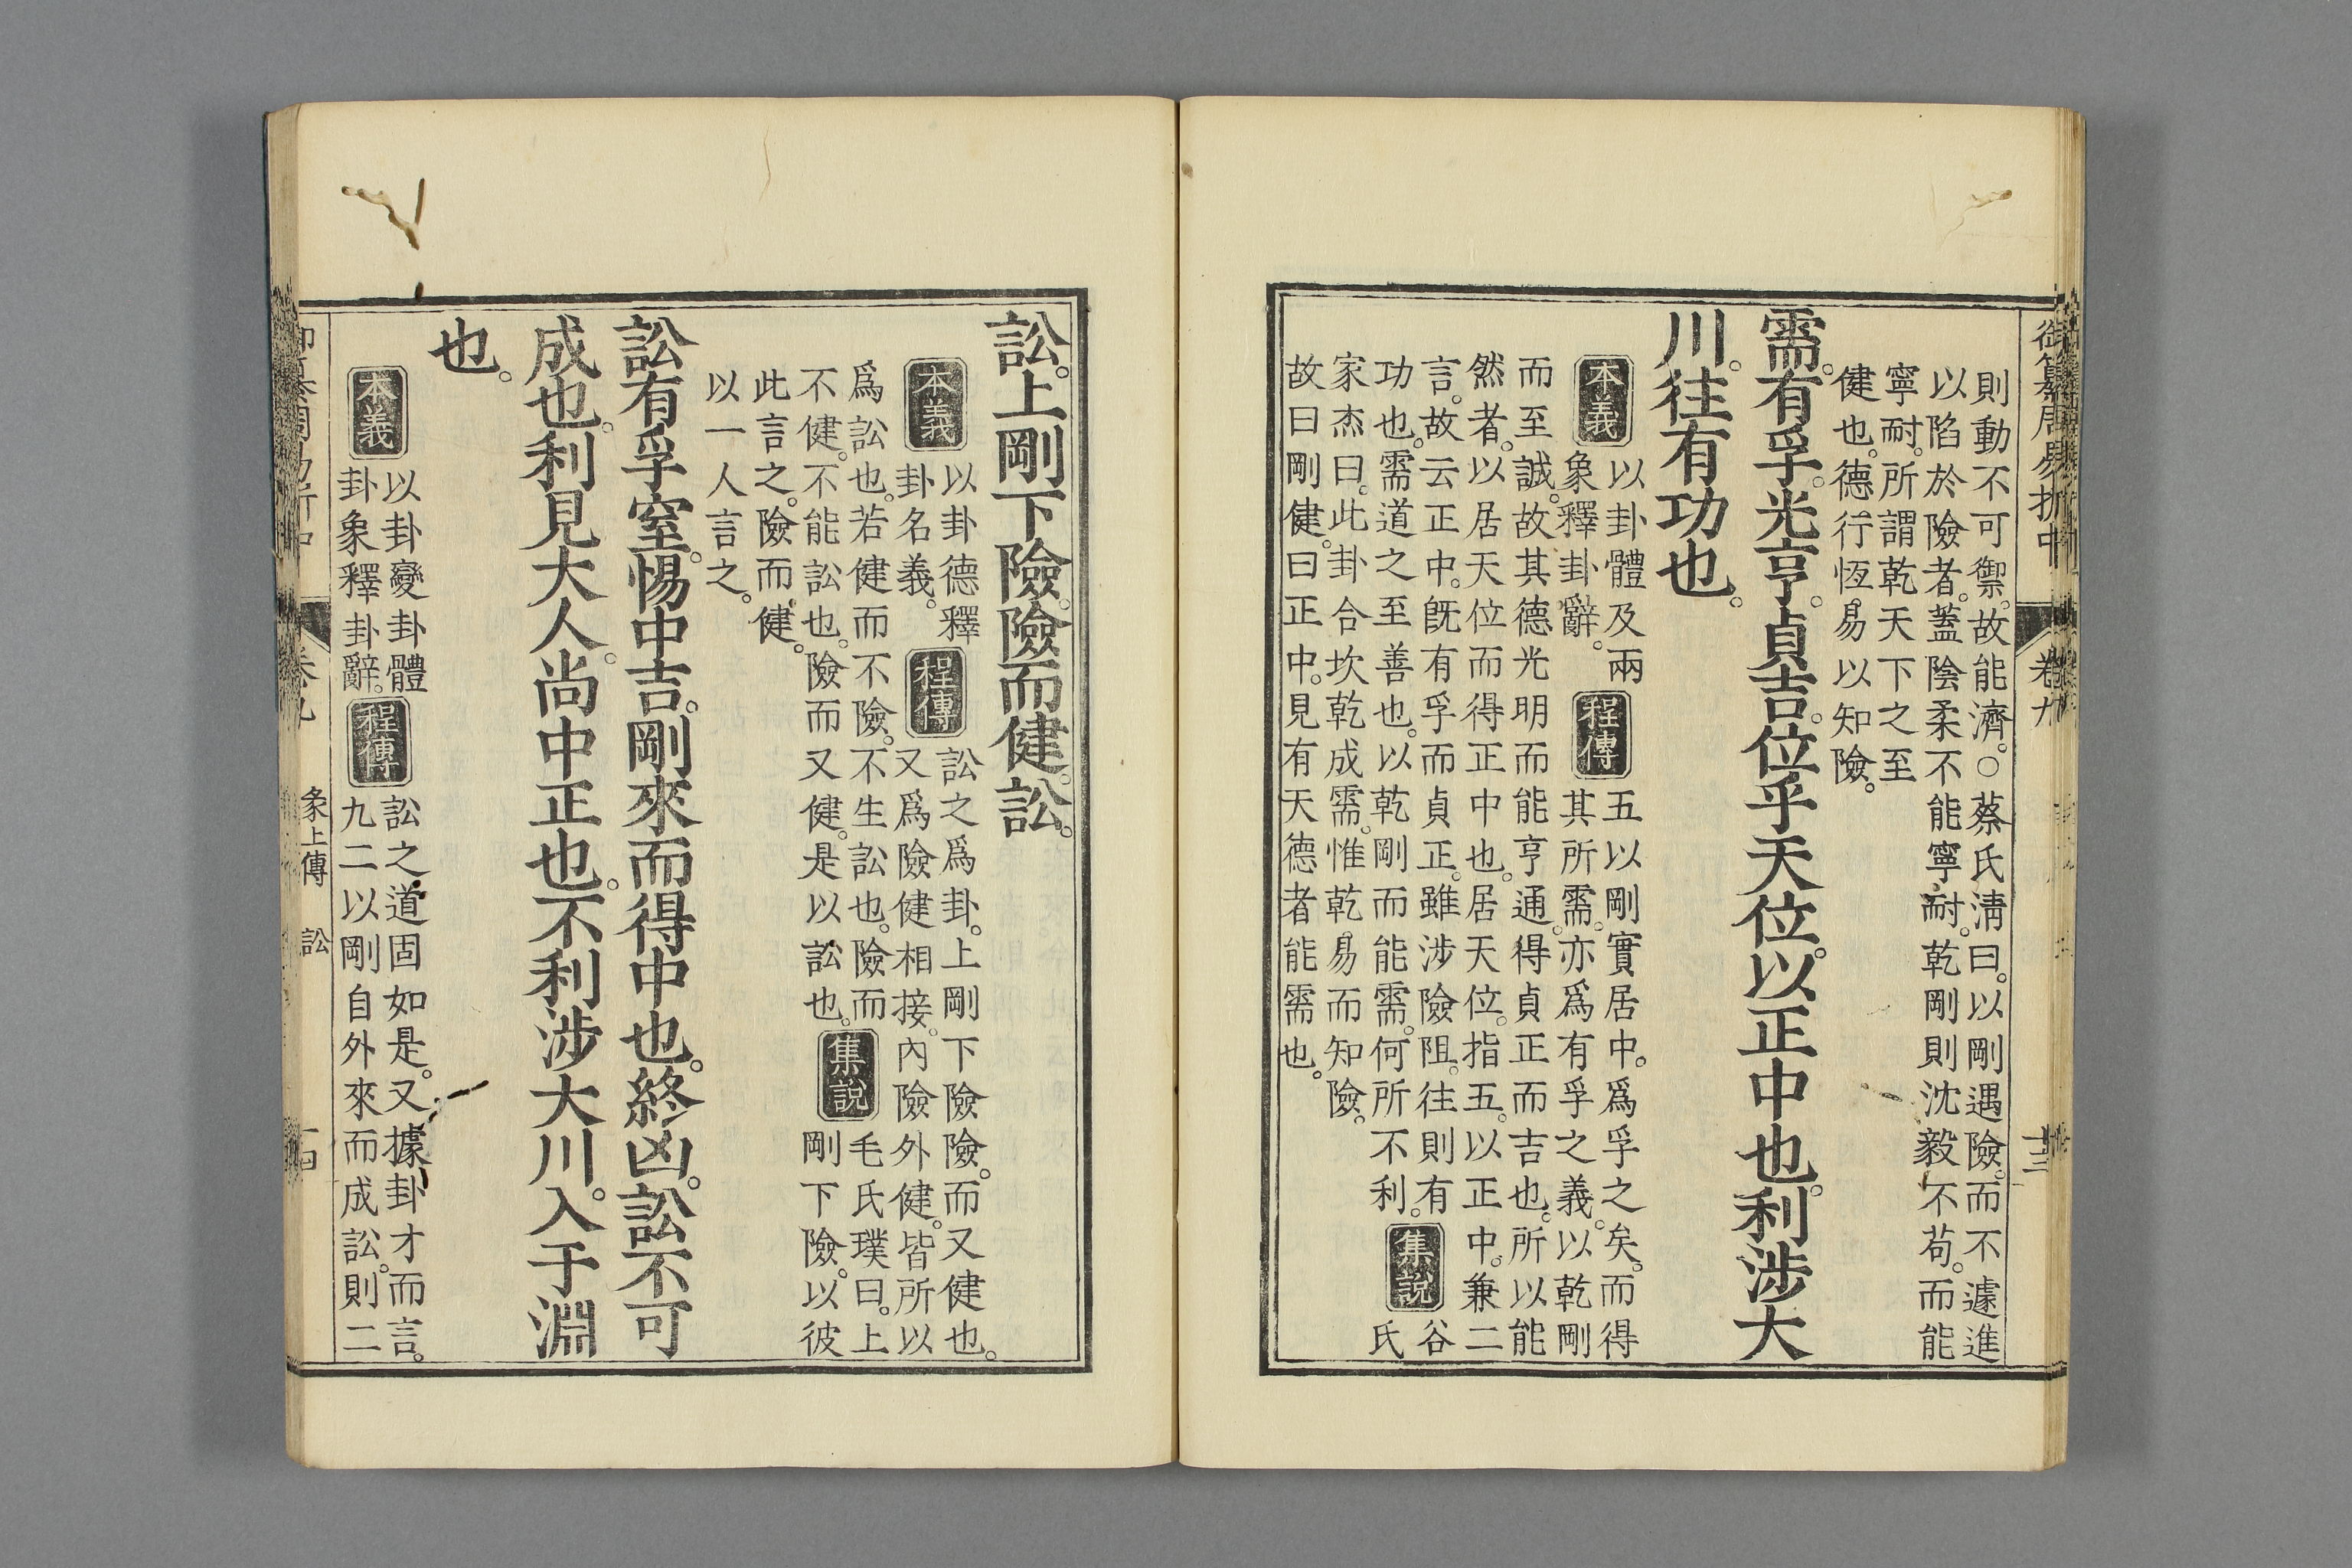 御纂周易折中　卷九　十三
則動不可禦。故能濟。○蔡氏清曰。以剛遇險。而不遽進
以陷於險者。蓋陰柔不能寧耐。乾剛則沈毅不苟。而能
寧耐。所謂乾天下之至
健也。德行恆。易以知險。
需。有孚。光亨。貞吉。位乎天位。以正中也。利涉大
川。往有功也。
本義
以卦體及兩
象釋卦辭。
程傳
五以剛實居中。爲孚之矣。而得
其所需。亦爲有孚之義。以乾剛
而至誠。故其德光明而能亨通。得貞正而吉也。所以能
然者。以居天位而得正中也。居天位。指五。以正中。兼二
言。故云正中。旣有孚而貞正。雖涉險阻。往則有
功也。需道之至善也。以乾剛而能需。何所不利。
集說
谷
氏
家杰曰。此卦合坎乾成需。惟乾。易而知險。
故曰剛健。曰正中。見有天德者能需也。
訟。上剛下險。險而健。訟。
本義
以卦德釋
卦名義。
程傳
訟之爲卦。上剛下險。險而又健也。
又爲險健相接。內險外健。皆所以
爲訟也。若健而不險。不生訟也。險而
不健。不能訟也。險而又健。是以訟也。
集說
毛氏璞曰。上
剛下險。以彼
此言之。險而健。
以一人言之。
訟有孚窒。惕中吉。剛來而得中也。終凶。訟不可
成也。利見大人。尚中正也。不利涉大川。入于淵
也。
本義
以卦變卦體
卦象釋卦辭。
程傳
訟之道固如是。又據卦才而言。
九二以剛自外來而成訟。則二
彖上傳　訟